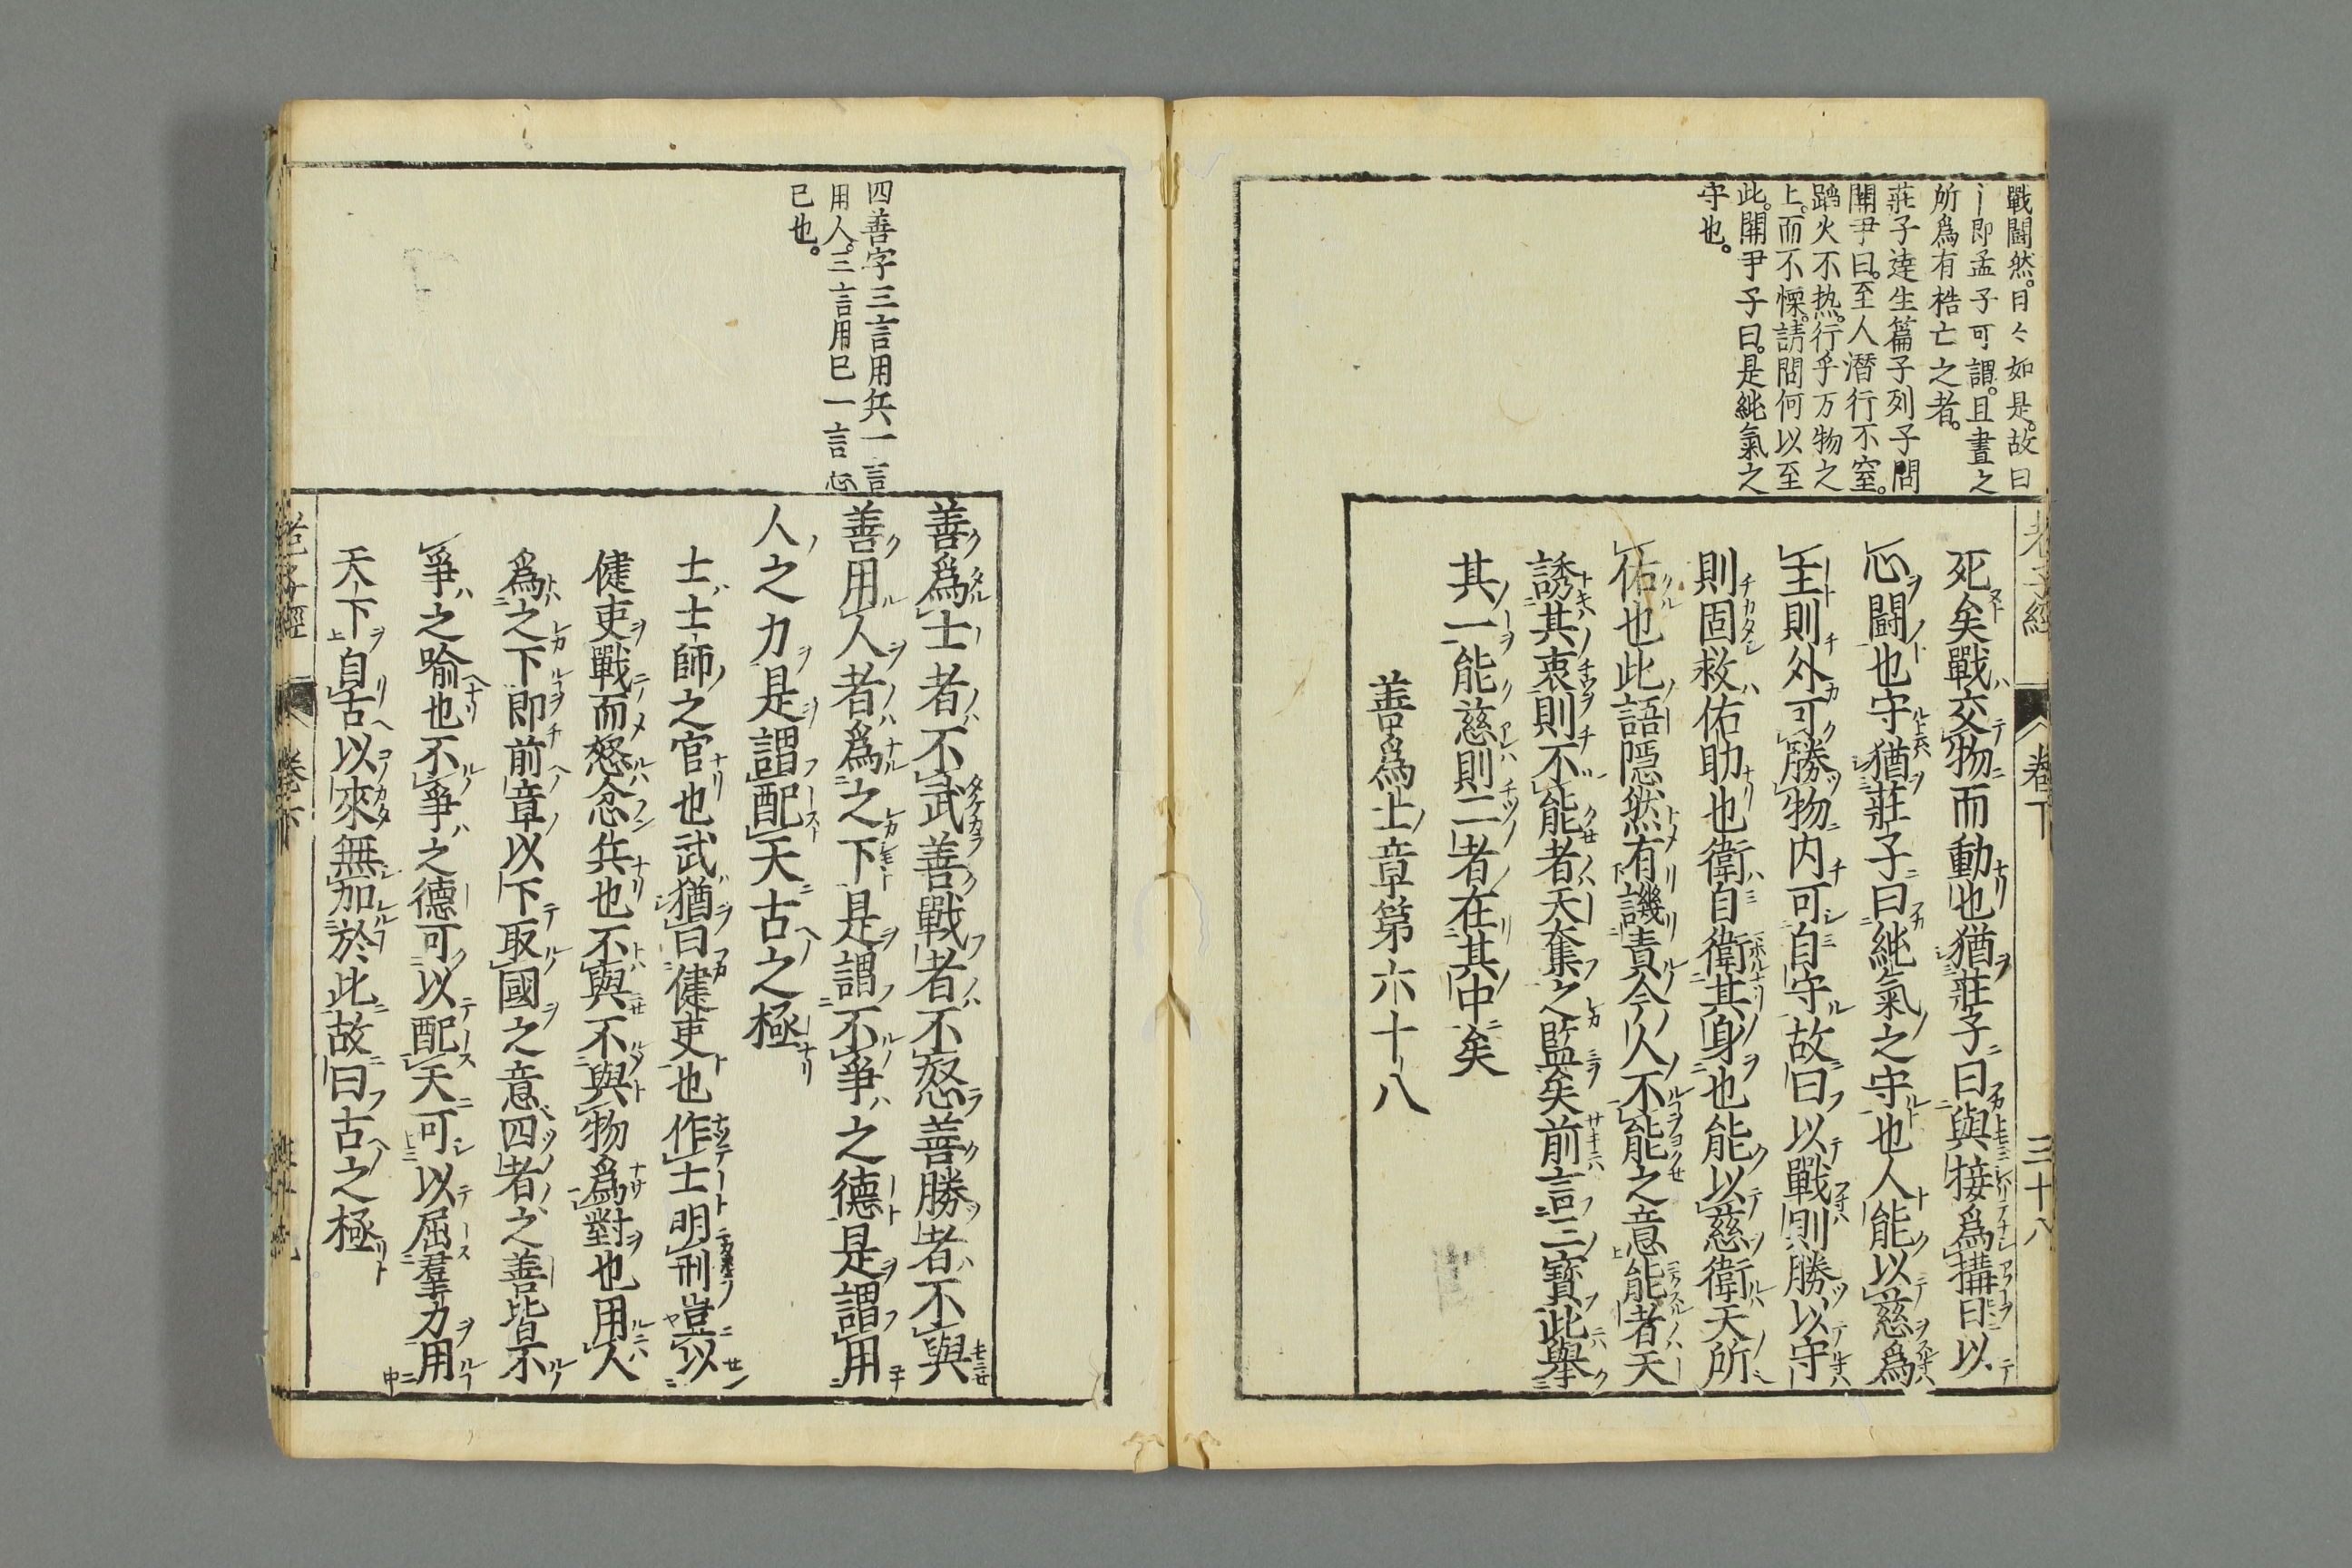 戰鬪然。日々如是。故曰
｜即孟子可謂。且晝之
所爲有梏亡之者。
莊子達生篇子列子問
關尹曰。至人潜行不窒。
蹈火不热。行乎万物之
上。而不慄。請問何以至
此。關尹子曰。是純氣之
守也。
老子經 卷下 三十八
死矣戰交物而動也猶莊子曰與接爲搆日以
心鬪也守猶莊子曰純氣之守也人能以慈爲
主則外可勝物内可自守故曰以戰則勝以守
則固救佑助也衛自衛其身也能以慈衛天所
佑也此語隱然有譏責今人不能之意能者天
誘其衷則不能者天奪之監矣前言三寶此擧
其一能慈則二者在其中矣
善爲士章第六十八
四善字三言用兵一言
用人。三言用已一言忘
已也。
善爲士者不武善戰者不怒善勝者不與
善用人者爲之下是謂不爭之德是謂用
人之力是謂配天古之極
士士師之官也武猶曰健吏也作士明刑豈以
健吏戰而怒忿兵也不與不與物爲對也用人
爲之下即前章以下取國之意四者之善皆不
爭之喩也不爭之德可以配天可以屈羣力用
天下自古以來無加於此故曰古之極
老子經 卷下